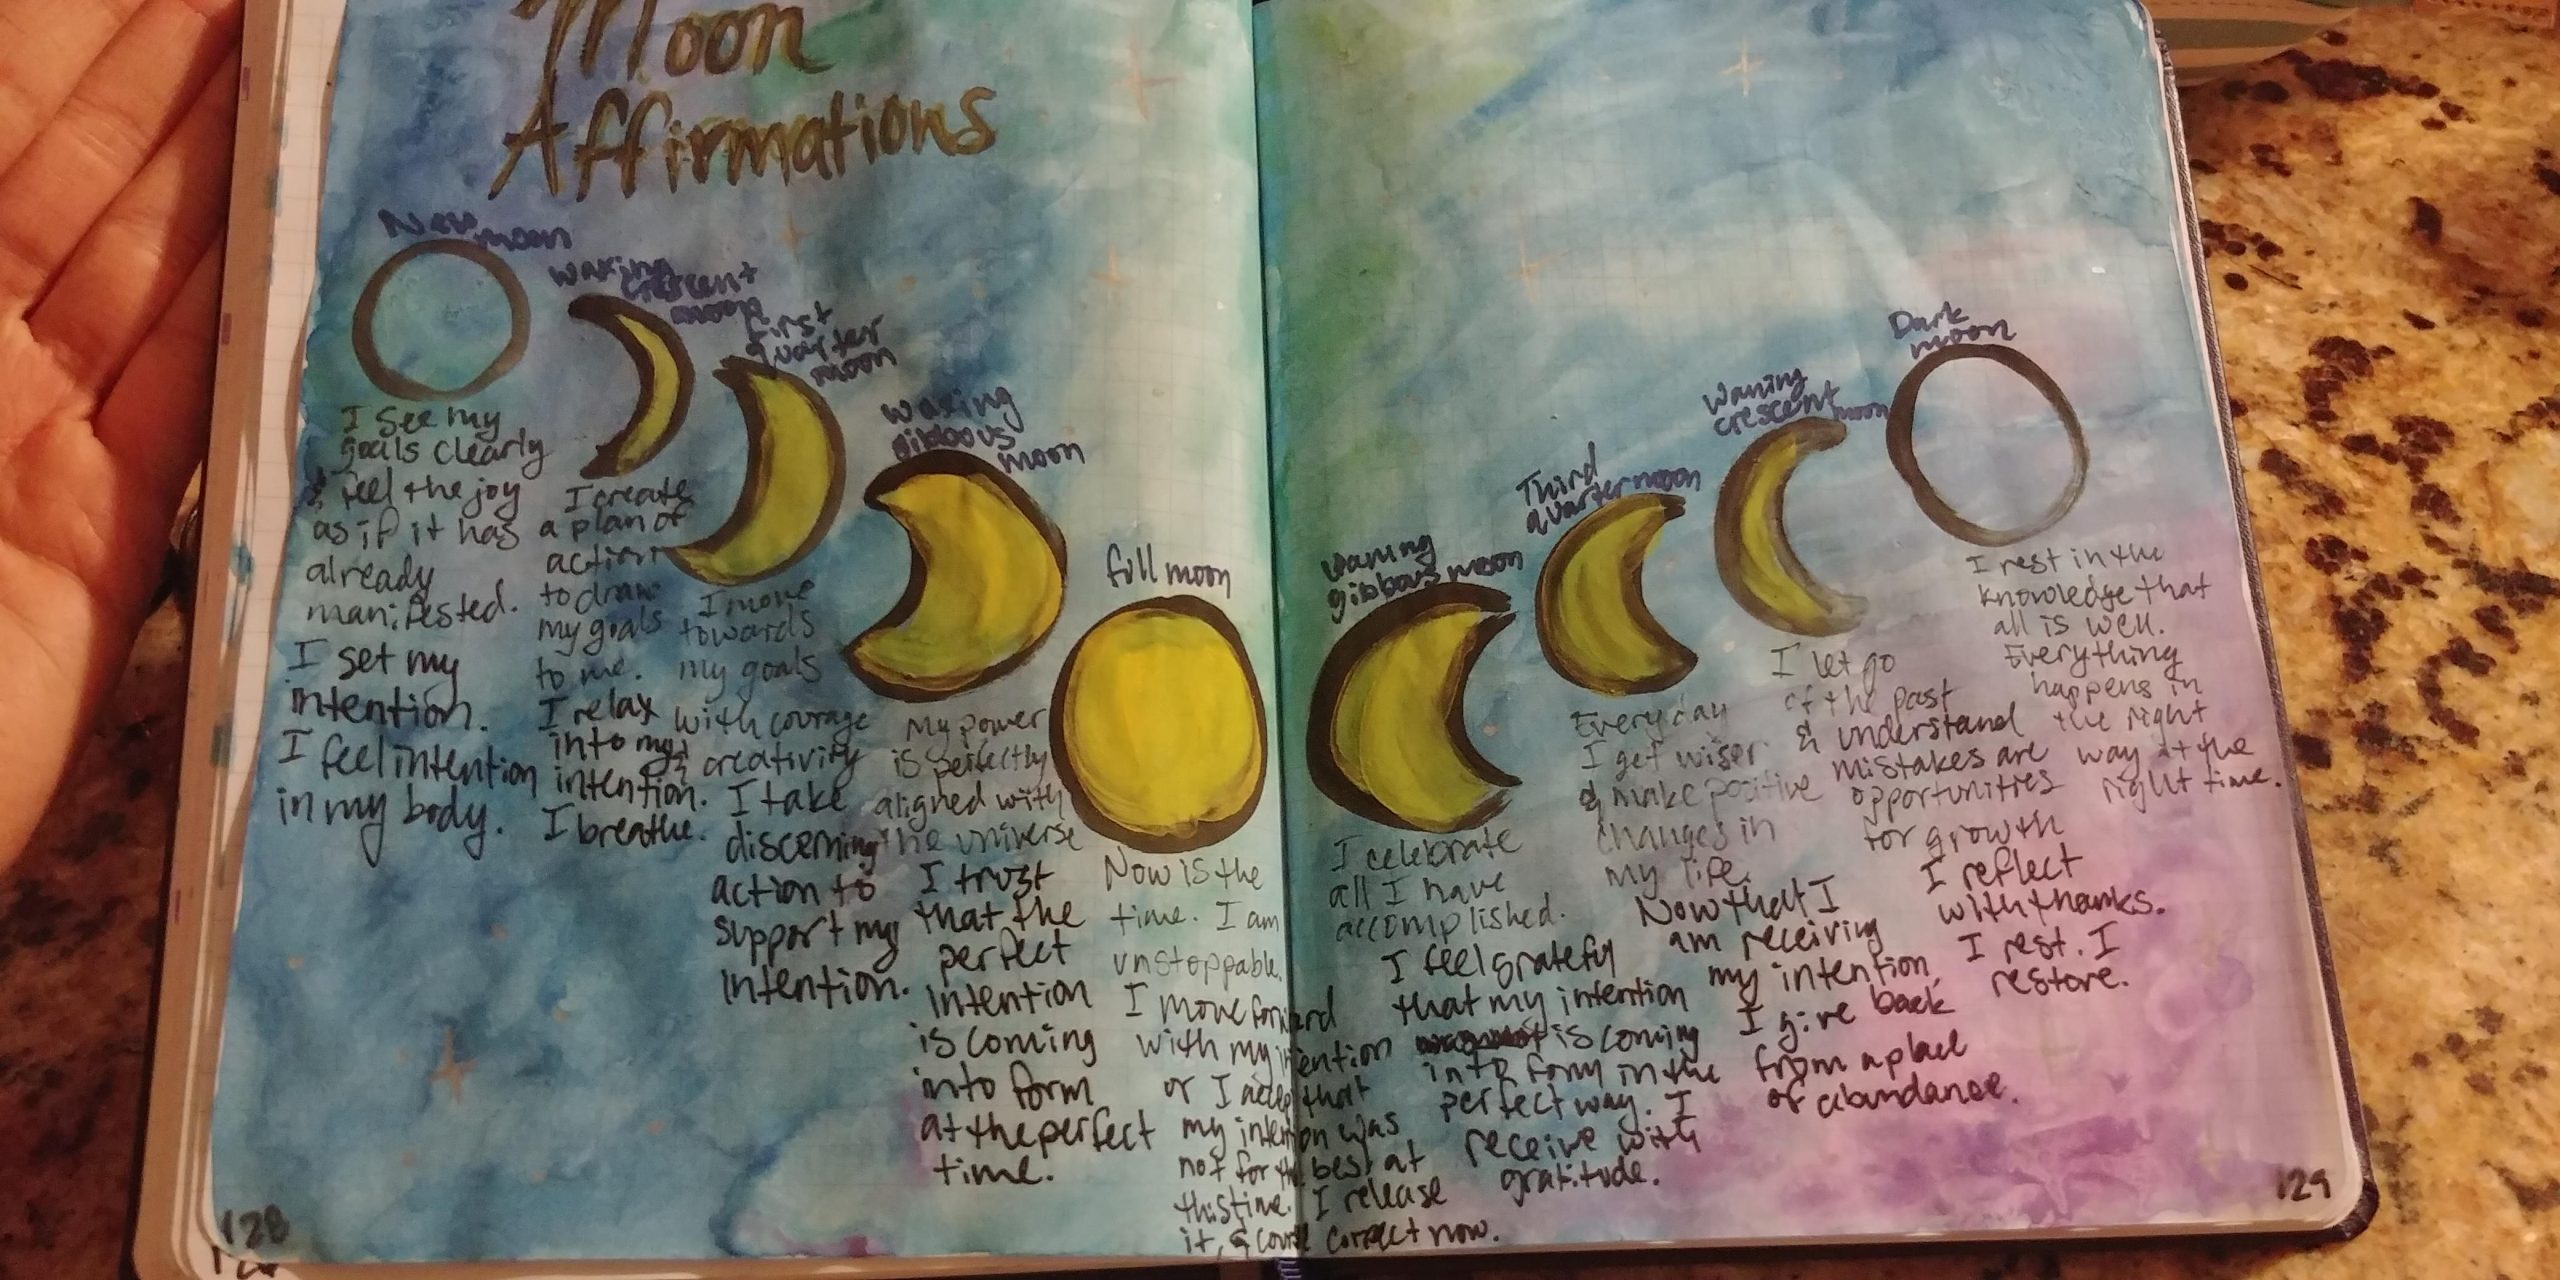 Moon
Affirmations
New
moon
I see my
goals clearly
& feel the joy
as if it has
already
manifested.
I set my
intention.
I feel intention
in my body.
waxing
crescent
moon
I create
a plan of
action
to draw
my goals
to me.
I relax
into my
intention.
I breathe.
First
quarter
moon
I move
towards
my goals
with courage
& creativity
I take
discerning
action to
support my
intention.
waxing
gibbous
moon
My power
is perfectly
aligned with
the universe
I trust
that the
perfect
intention
is coming
into form
at the perfect
time.
full moon
Now is the
time. I am
unstoppable.
I move forward
with my intention
or I accept that
my intention was
not for the best at
this time. I release
it, & course correct now.
waning
gibbous moon
I celebrate
all I have
accomplished.
I feel grateful
that my intention
is coming
into form in the
perfect way. I
receive with
gratitude.
Third
quarter moon
Everyday
I get wiser
& make positive
changes in
my life.
Now that I
am receiving
my intention,
I give back
from a place
of abundance.
Waning
crescent moon
I let go
of the past
& understand
mistakes are
opportunities
for growth
I reflect
with thanks.
I rest. I
restore.
Dark
moon
I rest in the
knowledge that
all is well.
Everything
happens in
the right
way at the
right time.
128
129